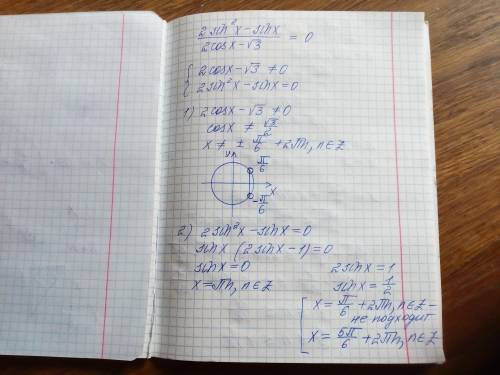 (2sin²x - sinx)/(2cosx - √3) = 0
{ 2cosx - √3 ≠ 0
{ 2sin²x - sinx = 0
1) 2cosx - √3 ≠ 0
cosx ≠ √3/2
x ≠ ± π/6 + 2πn, n∈Z
y π/6
x
-π/6
2) 2sin²x - sinx = 0
sinx (2sinx - 1) = 0
sinx = 0 2sinx = 1
x = πn, n∈Z sinx = 1/2
[ x = π/6 + 2πn, n∈Z -
не подходит
[ x = 5π/6 + 2πn, n∈Z